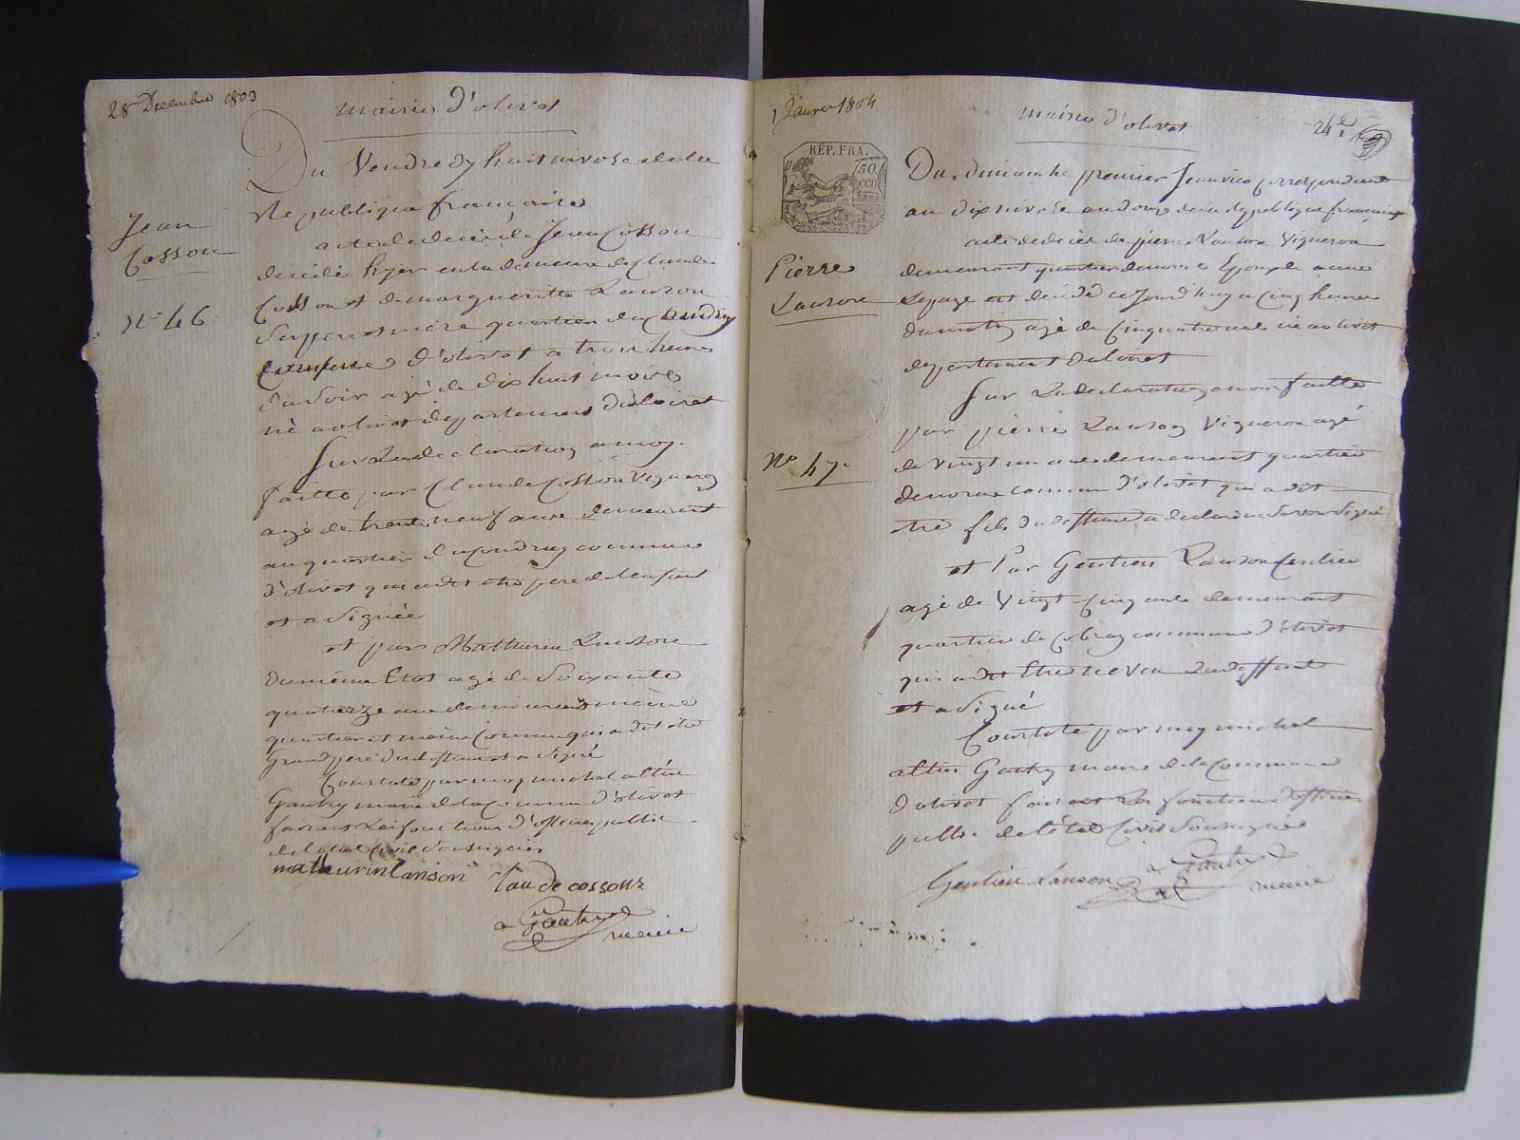 28 Decembre 1803
mairie d'olivet
Du Vendredy huit nivose de la
Republique francaise
Jean
Cosson
acte de decès de Jean Cosson
decidé hyer en la demeure de Claude
Cosson et de marguerite Lanson
N° 46
ses pere et mere quartier du Coudray
Commune d'olivet a trois heures
du soir agé de dix huit mois
né a olivet departement du loiret
sur la declaration a moy
faitte par Claude Cosson Vigneron
agé de trente neuf ans demeurant
au quartier du Coudray commune
d'olivet qui a dit etre pere de lenfant
et a Signée
et par Mathurin Lanson
du même Etat agé de Soixante
quatorze ans demeurant même
quartier et même Commune qui a dit etre
Grand pere du deffunt et a signé
Constaté par moy michel altin
Gautry maire de la Commune d'olivet
faisant les fonctions d'officier public
de l'etat Civil Soussignée
mathurin lanson
Clau de cosson
Gautry
maire
1 Janvier 1804
mairie d'olivet
24
REP. FRA.
50
CEN
Du dimanche premier Janvier correspondant
au dix nivose an douze de la Republique francaise
acte de decès de pierre Lanson Vigneron
Pierre
Lanson
demeurant quartier de Epoux de anne
Lepage est decidé ce jourd'huy a Cinq heures
du matin agé de Cinquante ans né a olivet
departement du loiret
sur la declaration a moy faitte
par pierre Lanson Vigneron agé
N° 47
de Vingt un ans demeurant quartier
de commune d'olivet qui a dit
etre fils du deffunt a declaré ne savoir Signé
et Par Gentien Lanson
agé de Vingt Cinq ans demeurant
quartier de commune d'olivet
qui a dit Etre neveu du deffunt
et a Signé
Constaté par moy michel
altin Gautry maire de la Commune
d'olivet faisant les fonctions d'officier
public de l'état Civil Soussignée
Gentien Lanson
Gautry
maire